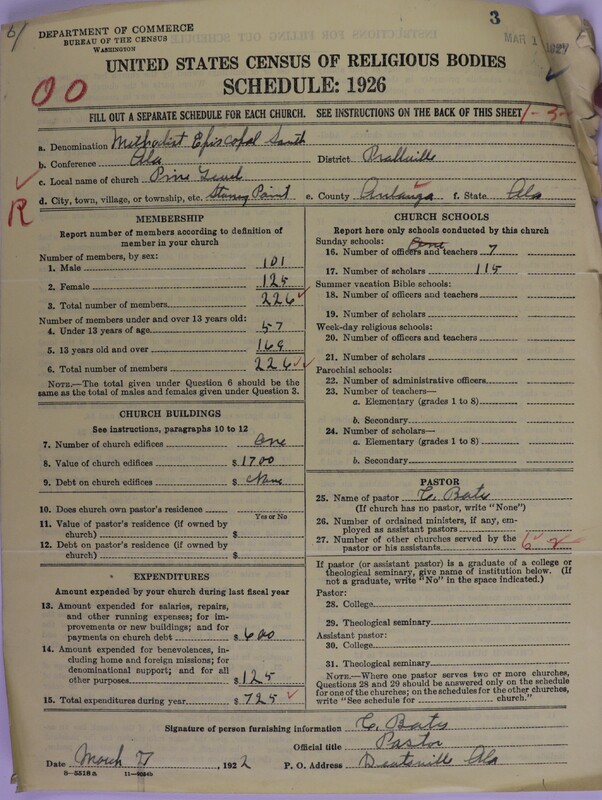 6/
3
DEPARTMENT OF COMMERCE
BUREAU OF THE CENSUS
WASHINGTON
MAR 1927
UNITED STATES CENSUS OF RELIGIOUS BODIES
SCHEDULE: 1926
OO
FILL OUT A SEPARATE SCHEDULE FOR EACH CHURCH. SEE INSTRUCTIONS ON THE BACK OF THIS SHEET
1-5-
a. Denomination Methodist Episcopal South
b. Conference Ala District Prattville
c. Local name of church Pine Level
R
d. City, town, village, or township, etc. Stoney Point e. County Autauga f. State Ala
MEMBERSHIP
Report number of members according to definition of member in your church
Number of members, by sex:
1. Male 101
2. Female 125
3. Total number of members 226
Number of members under and over 13 years old:
4. Under 13 years of age 57
5. 13 years old and over 169
6. Total number of members 226
NOTE.—The total given under Question 6 should be the
same as the total of males and females given under Question 3.
CHURCH BUILDINGS
See instructions, paragraphs 10 to 12
7. Number of church edifices One
8. Value of church edifices $ 1700
9. Debt on church edifices $ None
10. Does church own pastor's residence
Yes or No
11. Value of pastor's residence (if owned by
church) $
12. Debt on pastor's residence (if owned by
church) $
EXPENDITURES
Amount expended by your church during last fiscal year
13. Amount expended for salaries, repairs,
and other running expenses; for im-
provements or new buildings; and for
payments on church debt $ 600
14. Amount expended for benevolences, in-
cluding home and foreign missions; for
denominational support; and for all
other purposes $ 125
15. Total expenditures during year $ 725
CHURCH SCHOOLS
Report here only schools conducted by this church
Sunday schools:
16. Number of officers and teachers 7
17. Number of scholars 115
Summer vacation Bible schools:
18. Number of officers and teachers
19. Number of scholars
Week-day religious schools:
20. Number of officers and teachers
21. Number of scholars
Parochial schools:
22. Number of administrative officers
23. Number of teachers—
a. Elementary (grades 1 to 8)
b. Secondary
24. Number of scholars—
a. Elementary (grades 1 to 8)
b. Secondary
PASTOR
25. Name of pastor C. Bates
(If church has no pastor, write "None")
26. Number of ordained ministers, if any, em-
ployed as assistant pastors
27. Number of other churches served by the
pastor or his assistants 6
If pastor (or assistant pastor) is a graduate of a college or
theological seminary, give name of institution below. (If
not a graduate, write "No" in the space indicated.)
Pastor:
28. College
29. Theological seminary
Assistant pastor:
30. College
31. Theological seminary
NOTE.—Where one pastor serves two or more churches,
Questions 28 and 29 should be answered only on the schedule
for one of the churches; on the schedules for the other churches,
write "See schedule for church."
Signature of person furnishing information C. Bates
Official title Pastor
Date March 7, 192 P. O. Address Deatsville Ala
8—5518 a